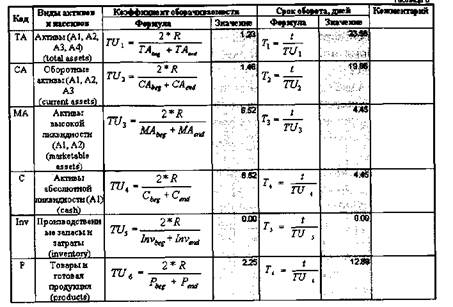 Таблица 6
Код Виды активов и пассивов Коэффициент оборачиваемости Срок оборота, дней Комментарий
Формула Значение Формула Значение
TA Активы (A1, A2, A3, A4) (total assets) TU₁ = 2*R / (TA_beg + TA_end) 1.23 T₁ = t / TU₁
CA Оборотные активы (A1, A2, A3 (current assets) TU₂ = 2*R / (CA_beg + CA_end) 1.46 T₂ = t / TU₂
MA Активы высокой ликвидности (A1, A2) (marketable assets) TU₃ = 2*R / (MA_beg + MA_end) 6.52 T₃ = t / TU₃ 4.45
C Активы абсолютной ликвидности (A1) (cash) TU₄ = 2*R / (C_beg + C_end) 6.52 T₄ = t / TU₄ 4.45
Inv Производственные запасы и затраты (inventory) TU₅ = 2*R / (Inv_beg + Inv_end) 0.00 T₅ = t / TU₅ 0.00
P Товары и готовая продукция (products) TU₆ = 2*R / (P_beg + P_end) 2.25 t / TU₆